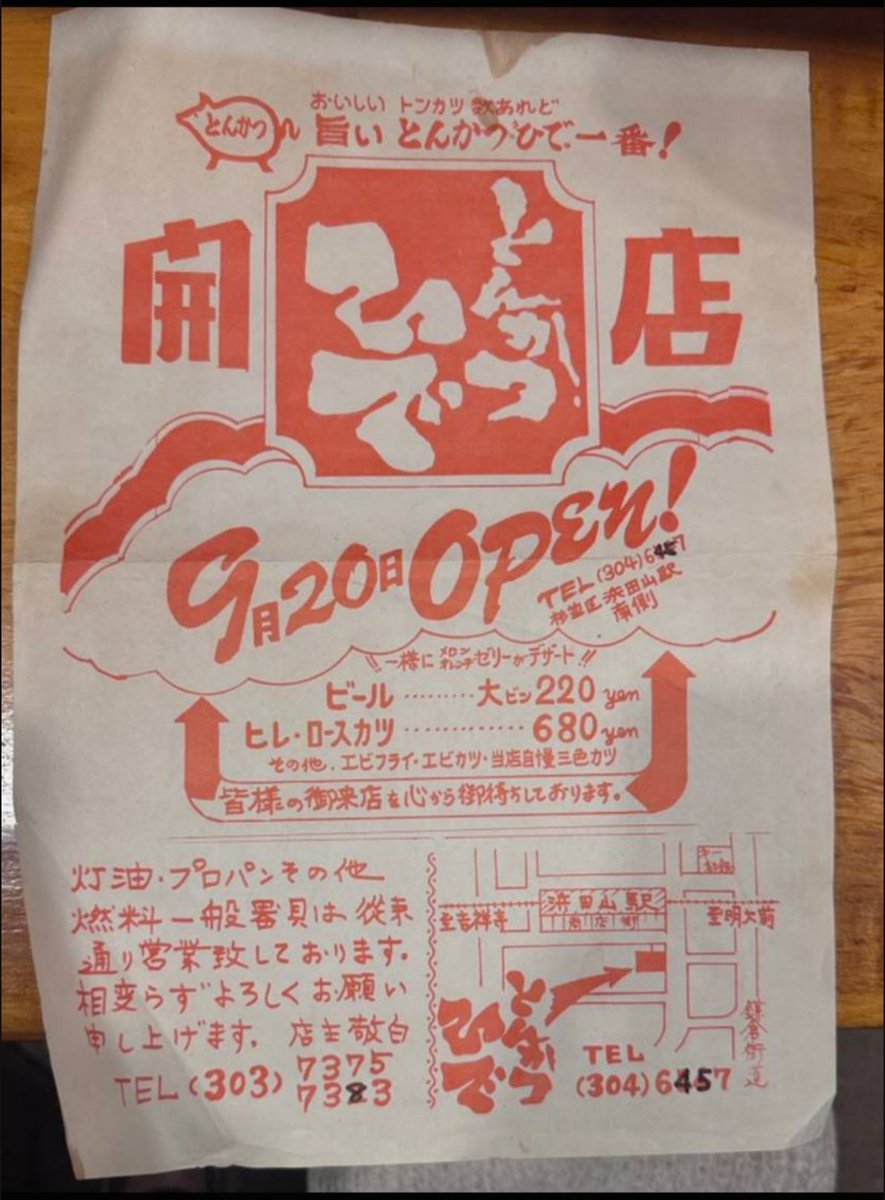 とんかつ
おいしい トンカツ 数あれど
旨い とんかつひで 一番!
開店
とんかつ
ひで
9月20日 OPEN!
TEL (304) 6457
杉並区 浜田山駅
南側
!! 一様に メロン オレンヂ ゼリーがデザート !!
ビール ········· 大ビン 220 yen
ヒレ・ロースカツ ············ 680 yen
その他、エビフライ・エビカツ・当店自慢三色カツ
皆様の御来店を心から御待ちしております。
灯油・プロパンその他
燃料一般器具は従来
通り営業致しております。
相変らずよろしくお願い
申し上げます。 店主敬白
TEL (303) 7375
7383
浜田山駅
商店街
至吉祥寺
至明大前
鎌倉街道
とんかつ
ひで
TEL
(304) 6457